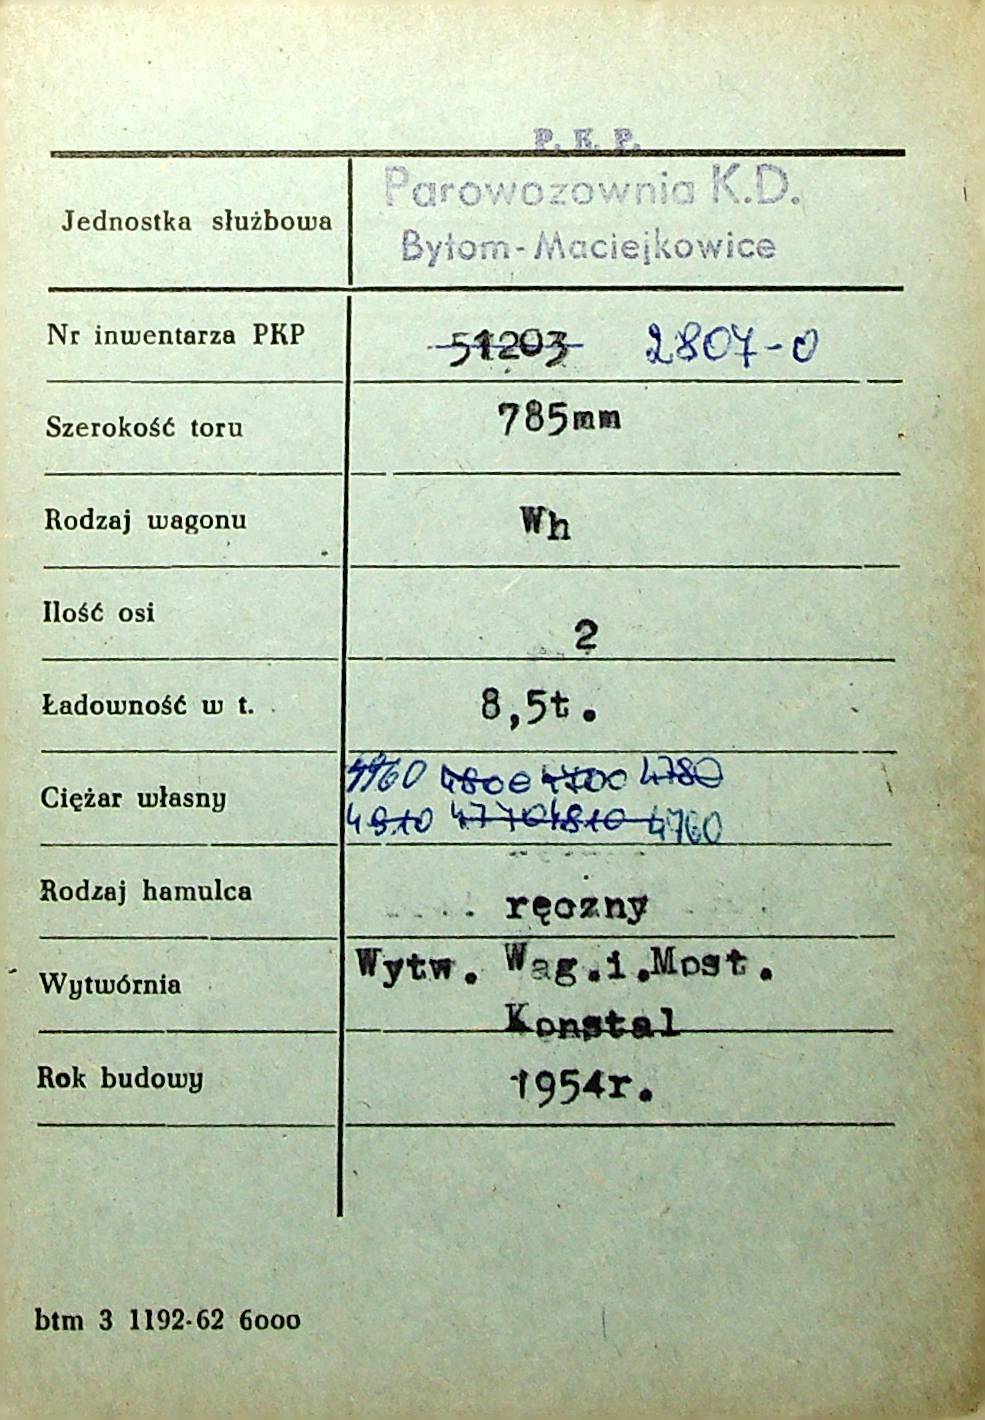 P. K. P.
Jednostka służbowa Parowozownia K.D.
Bytom-Maciejkowice
Nr inwentarza PKP 51203 2807-0
Szerokość toru 785mm
Rodzaj wagonu Wh
Ilość osi 2
Ładowność w t. 8,5t.
Ciężar własny 4960 4800 4700 4780
4810 4770 4810 4760
Rodzaj hamulca ręczny
Wytwórnia Wytw. Wag.i.Most.
Konstal
Rok budowy 1954r.
btm 3 1192-62 6000